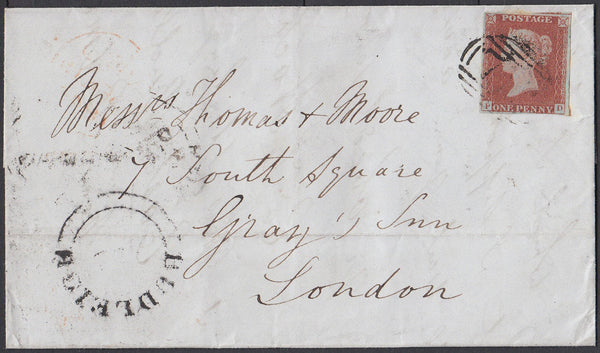 POSTAGE
ONE PENNY
Messrs Thomas & Moore
7 South Square
Gray's Inn
London
HUDLEIGH